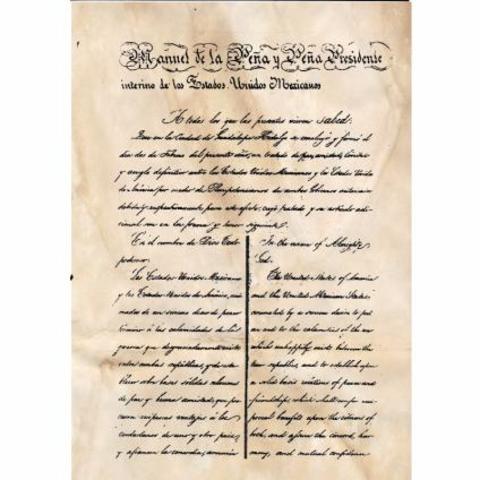 Manuel de la Peña y Peña Presidente
interino de los Estados Unidos Mexicanos
A todos los que las presentes vieren sabed:
Que en la Ciudad de Guadalupe Hidalgo se concluyó y firmó el
dia dos de Febrero del presente año, un tratado de paz, amistad, limites
y arreglo definitivo entre los Estados Unidos Mexicanos y los Estados Unidos
de America por medio de Plenipotenciarios de ambos Gobiernos autorizados
debida y respectivamente para este efecto, cuyo tratado y su articulo adi-
cional son en la forma y tenor siguiente.
En el nombre de Dios Todo-
poderoso.
Los Estados Unidos Mexicanos
y los Estados Unidos de America, ani-
mados de un sincero deseo de poner
término á las calamidades de la
guerra que desgraciadamente existe
entre ambas repúblicas, y de esta-
blecer sobre bases sólidas relaciones
de paz y buena amistad, que pro-
curen reciprocas ventajas á los
ciudadanos de uno y otro pais,
y afiancen la concordia, armonia
In the name of Almighty
God.
The United States of America
and the United Mexican States
animated by a sincere desire to put
an end to the calamities of the war
which unhappily exists between the
two republics, and to establish upon
a solid basis relations of peace and
friendship, which shall confer reci-
procal benefits upon the citizens of
both, and assure the concord, har-
mony, and mutual confidence